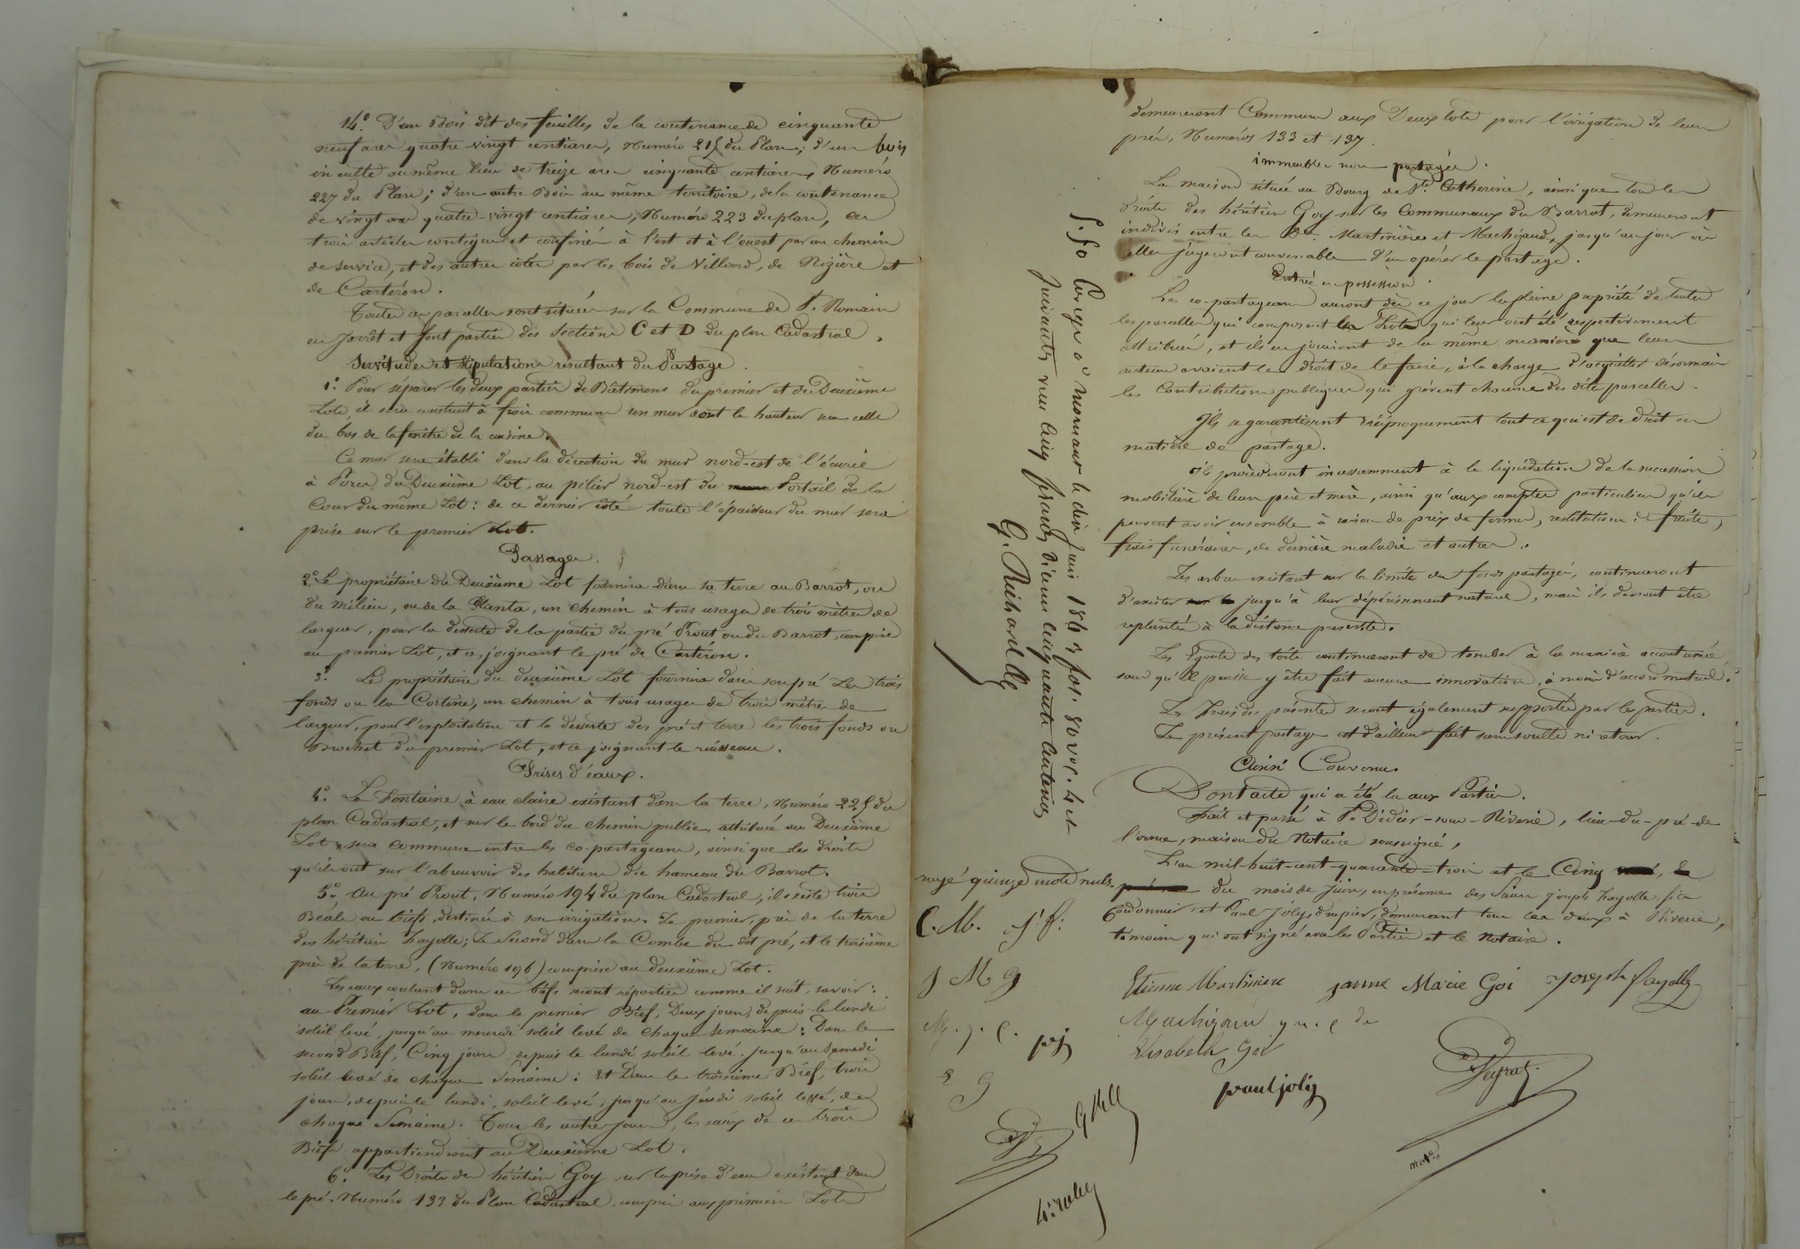 14° D'un Bois dit des feuilles de la contenance de cinquante
neuf ares quatre vingt centiares, Numéro 215 du Plan; d'un bois
inculte au même lieu de treize ares cinquante centiares, Numéro
227 du Plan; d'un autre Bois au même territoire, de la contenance
de vingt ares quatre-vingt centiares, Numéro 223 du plan, ces
trois articles contigus et confinés à l'est et à l'ouest par un chemin
de service, et des autres côtés par les bois de Villard, de Rozière et
de Cartéron.
Toutes ces parcelles sont situées sur la Commune de St. Romain
en Jarrêt et font partie des Sections C et D du plan Cadastral.
Servitudes et stipulations résultant du Partage.
1° Pour séparer les deux parties de Bâtimens du premier et du Deuxième
Lots, il sera construit à frais communs un mur dont la hauteur sera celle
du bas de la fenêtre de la cuisine.
Ce mur sera établi dans la direction du mur nord-est de l'écurie
à Porcs du Deuxième Lot, au pilier nord-est du Portail de la
Cour du même Lot: de ce dernier côté toute l'épaisseur du mur sera
prise sur le premier Lot.
Passages.
2° Le propriétaire du Deuxième Lot fournira dans sa terre au Barrot, ou
du milieu, ou de la Planta, un chemin à tous usages de trois mètres de
largeur, pour la desserte de la partie du pré Prout ou du Barrot, comprise
au premier Lot, et ce joignant le pré de Cartéron.
3° Le propriétaire du deuxième Lot fournira dans son pré Les trois
fonds ou la Cortine, un chemin à tous usages de trois mètres de
largeur, pour l'exploitation et la desserte des pré et terre les trois fonds ou
Brochet du premier Lot, et ce joignant le ruisseau.
Prises d'eaux.
4° La Fontaine à eau claire existant dans la terre, Numéro 225 du
plan Cadastral, et sur le bord du chemin public, attribuée au Deuxième
Lot, sera commune entre les co-partageans, ainsi que les droits
qu'ils ont sur l'abreuvoir des habitans du hameau du Barrot.
5° Au pré Prout, Numéro 194 du plan Cadastral, il existe trois
Béals ou biefs, destinés à son irrigation. Le premier, près de la terre
des héritiers Fayolle; Le Second dans la Combe du dit pré, et le troisième
près de la terre, (Numéro 196) comprise au deuxième Lot.
Les eaux coulant dans ces biefs seront réparties comme il suit, savoir:
au Premier Lot, dans le premier Bief, Deux jours, depuis le lundi
soleil levé, jusqu'au mercredi soleil levé de chaque semaine; Dans le
second Bief, Cinq jours, depuis le lundi soleil levé, jusqu'au Samedi
soleil levé de chaque Semaine: Et Dans le troisième Bief, trois
jours, depuis le lundi, soleil levé, jusqu'au jeudi soleil levé, de
chaque Semaine. Tous les autres jours, les eaux de ces trois
Biefs appartiendront au Deuxième Lot.
6° Les Droits des héritiers Goy sur la prise d'eau existant dans
le pré, Numéro 133 du Plan Cadastral, compris aux premier Lots
demeureront Communs aux Deux lots pour l'irrigation de leurs
prés, Numéros 133 et 137.
immeubles non partagés.
La maison située au Bourg de Ste. Catherine, ainsi que tous les
droits des héritiers Goy sur les Communaux du Barrot, demeureront
indivis entre les Dames Martinière et Machigaud, jusqu'au jour où
elles jugeront convenable d'en opérer le partage.
Entrée en possession
Les co-partageans auront dès ce jour la pleine propriété de toutes
les parcelles qui composent les Lots qui leur ont été respectivement
attribués, et ils en jouiront de la même manière que leurs
auteurs avaient le droit de le faire, à la charge d'acquitter désormais
les Contributions publiques qui grèvent chacune des dites parcelles.
Ils se garantissent réciproquement tout ce qui est de droit en
matière de partage.
Ils procéderont incessamment à la liquidation de la succession
mobilière de leurs père et mère, ainsi qu'aux comptes particuliers qu'ils
peuvent avoir ensemble à raison de prix de ferme, restitutions de fruits,
frais funéraires, de dernière maladie et autres.
Les arbres existant sur la limite des fonds partagés, continueront
d'exister jusqu'à leur dépérissement naturel, mais ils devront être
replantés à la distance prescrite.
Les Egouts des toits continueront de tomber à la manière accoutumée,
sans qu'il puisse y être fait aucune innovation, à moins d'accord mutuel.
Les frais des présentes seront également supportés par les parties.
Le présent partage est d'ailleurs fait sans soulte ni retour.
Ainsi Convenu.
Dont acte qui a été lu aux Parties.
Fait et passé à St. Didier-sous-Riverie, lieu-du-pré-de-
l'orme, maison du Notaire soussigné,
L'an mil-huit-cent-quarante-trois et le Cinq
du mois de Juin, en présence des Sieurs Joseph Fayolle fils
Cordonnier, et Paul Joly, drapier, demeurant tous les deux à Riverie,
témoins qui ont signé avec les Parties et le Notaire.
rayé quinze mots nuls.
C. M. J. f.
J M G
M. J. C. pj
E G
Etienne Martiniere Janne Marie Goi Joseph fayolle
Elisabeth Goi
paul joly
Peyrat
not.re
G. Rlle
S. 50 Enregé à Mornant le dix juin 1843, fol. 80 vo. c. 4 et
suivantes reçu cinq francs dixieme cinquante centimes
G. Richardelle